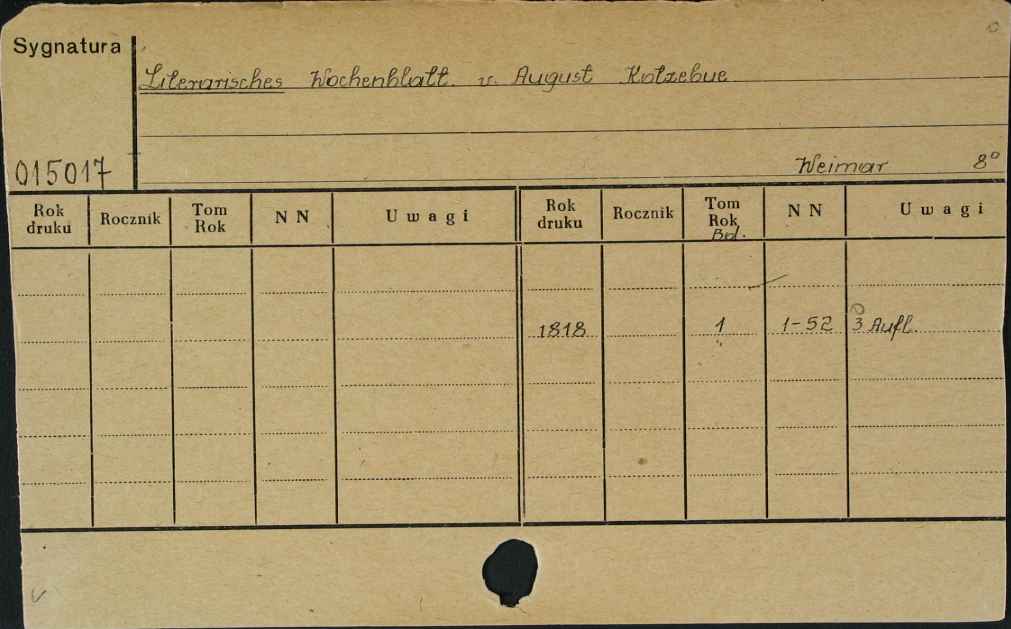 Sygnatura
Literarisches Wochenblatt. v. August Kotzebue
015017
Weimar 8°
Rok druku Rocznik Tom Rok N N Uwagi Rok druku Rocznik Tom Rok Bd. N N Uwagi
1818 1 1-52 3 Aufl.